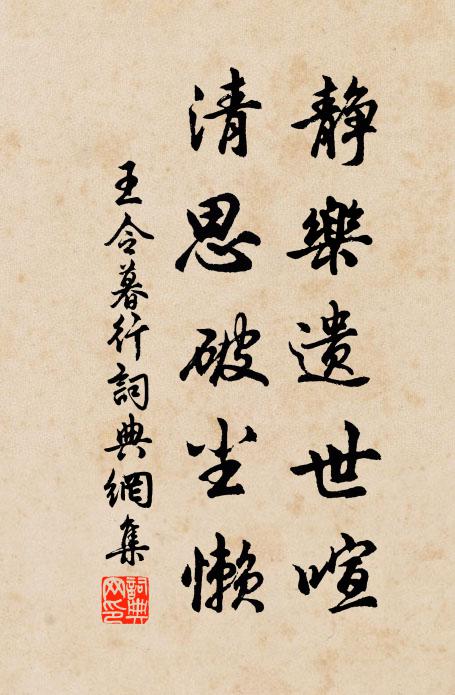 靜樂遺世喧
清思破尘懶
王令暮行詞典網集
詞典网印